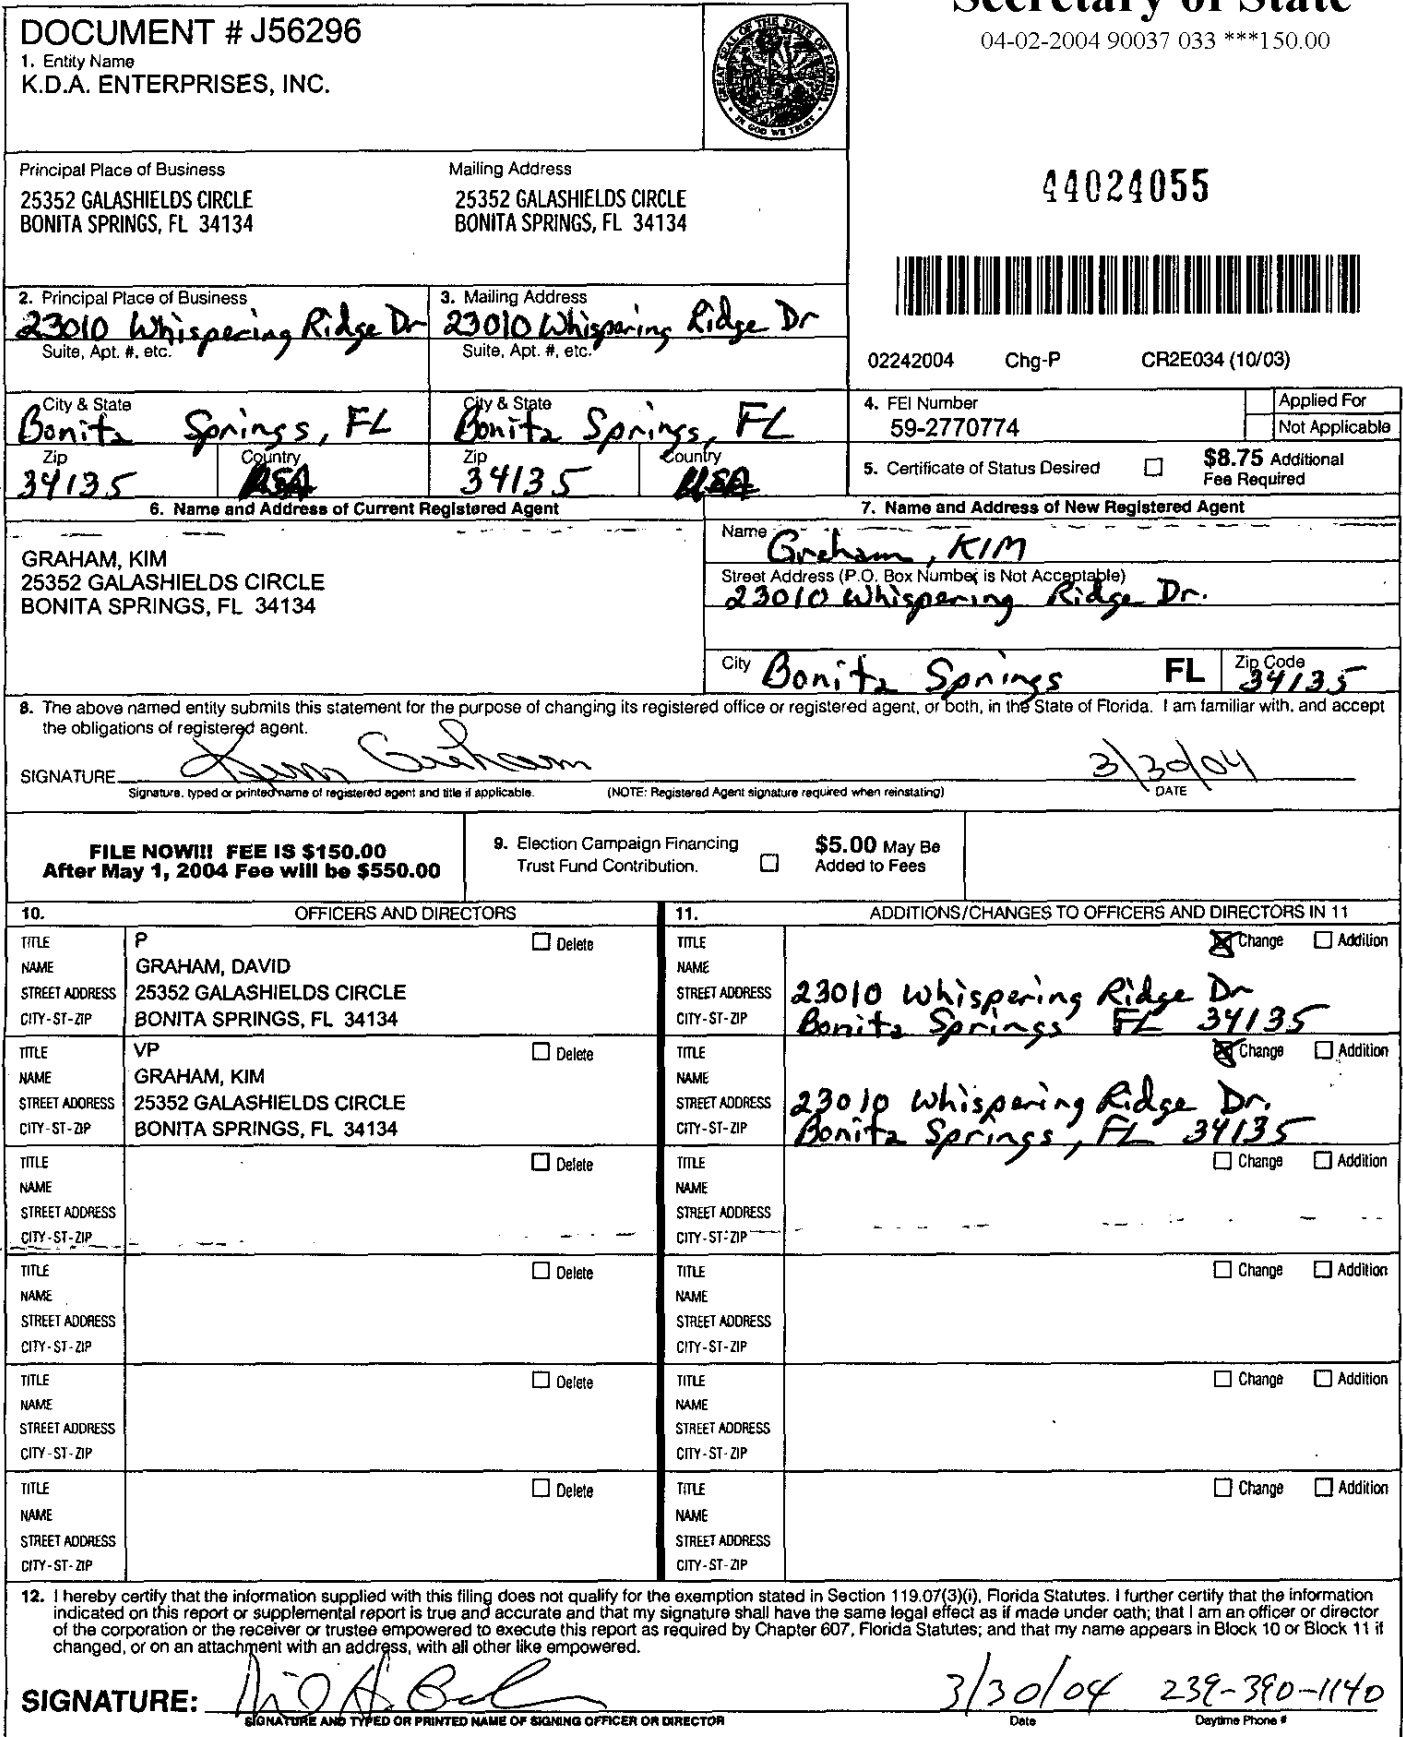 Secretary of State
04-02-2004 90037 033 ***150.00
DOCUMENT # J56296
1. Entity Name
K.D.A. ENTERPRISES, INC.
GREAT SEAL OF THE STATE OF FLORIDA
IN GOD WE TRUST
Principal Place of Business
25352 GALASHIELDS CIRCLE
BONITA SPRINGS, FL 34134
Mailing Address
25352 GALASHIELDS CIRCLE
BONITA SPRINGS, FL 34134
44024055
2. Principal Place of Business
23010 Whispering Ridge Dr
Suite, Apt. #, etc.
3. Mailing Address
23010 Whispering Ridge Dr
Suite, Apt. #, etc.
02242004 Chg-P CR2E034 (10/03)
City & State
Bonita Springs, FL
City & State
Bonita Springs, FL
Zip
34135
Country
USA
Zip
34135
Country
USA
4. FEI Number
59-2770774
Applied For
Not Applicable
5. Certificate of Status Desired
$8.75 Additional
Fee Required
6. Name and Address of Current Registered Agent
GRAHAM, KIM
25352 GALASHIELDS CIRCLE
BONITA SPRINGS, FL 34134
7. Name and Address of New Registered Agent
Name
Graham, KIM
Street Address (P.O. Box Number is Not Acceptable)
23010 Whispering Ridge Dr.
City Bonita Springs FL Zip Code 34135
8. The above named entity submits this statement for the purpose of changing its registered office or registered agent, or both, in the State of Florida. I am familiar with, and accept
the obligations of registered agent.
SIGNATURE Kim Graham 3/30/04
Signature, typed or printed name of registered agent and title if applicable. (NOTE: Registered Agent signature required when reinstating) DATE
FILE NOW!!! FEE IS $150.00
After May 1, 2004 Fee will be $550.00
9. Election Campaign Financing
Trust Fund Contribution.
$5.00 May Be
Added to Fees
10. OFFICERS AND DIRECTORS
11. ADDITIONS/CHANGES TO OFFICERS AND DIRECTORS IN 11
TITLE P Delete
NAME GRAHAM, DAVID
STREET ADDRESS 25352 GALASHIELDS CIRCLE
CITY-ST-ZIP BONITA SPRINGS, FL 34134
TITLE Change Addition
NAME
STREET ADDRESS 23010 Whispering Ridge Dr
CITY-ST-ZIP Bonita Springs FL 34135
TITLE VP Delete
NAME GRAHAM, KIM
STREET ADDRESS 25352 GALASHIELDS CIRCLE
CITY-ST-ZIP BONITA SPRINGS, FL 34134
TITLE Change Addition
NAME
STREET ADDRESS 23010 Whispering Ridge Dr.
CITY-ST-ZIP Bonita Springs, FL 34135
TITLE Delete
NAME
STREET ADDRESS
CITY-ST-ZIP
TITLE Change Addition
NAME
STREET ADDRESS
CITY-ST-ZIP
TITLE Delete
NAME
STREET ADDRESS
CITY-ST-ZIP
TITLE Change Addition
NAME
STREET ADDRESS
CITY-ST-ZIP
TITLE Delete
NAME
STREET ADDRESS
CITY-ST-ZIP
TITLE Change Addition
NAME
STREET ADDRESS
CITY-ST-ZIP
TITLE Delete
NAME
STREET ADDRESS
CITY-ST-ZIP
TITLE Change Addition
NAME
STREET ADDRESS
CITY-ST-ZIP
12. I hereby certify that the information supplied with this filing does not qualify for the exemption stated in Section 119.07(3)(i), Florida Statutes. I further certify that the information
indicated on this report or supplemental report is true and accurate and that my signature shall have the same legal effect as if made under oath; that I am an officer or director
of the corporation or the receiver or trustee empowered to execute this report as required by Chapter 607, Florida Statutes; and that my name appears in Block 10 or Block 11 if
changed, or on an attachment with an address, with all other like empowered.
SIGNATURE: 3/30/04 239-390-1140
SIGNATURE AND TYPED OR PRINTED NAME OF SIGNING OFFICER OR DIRECTOR Date Daytime Phone #